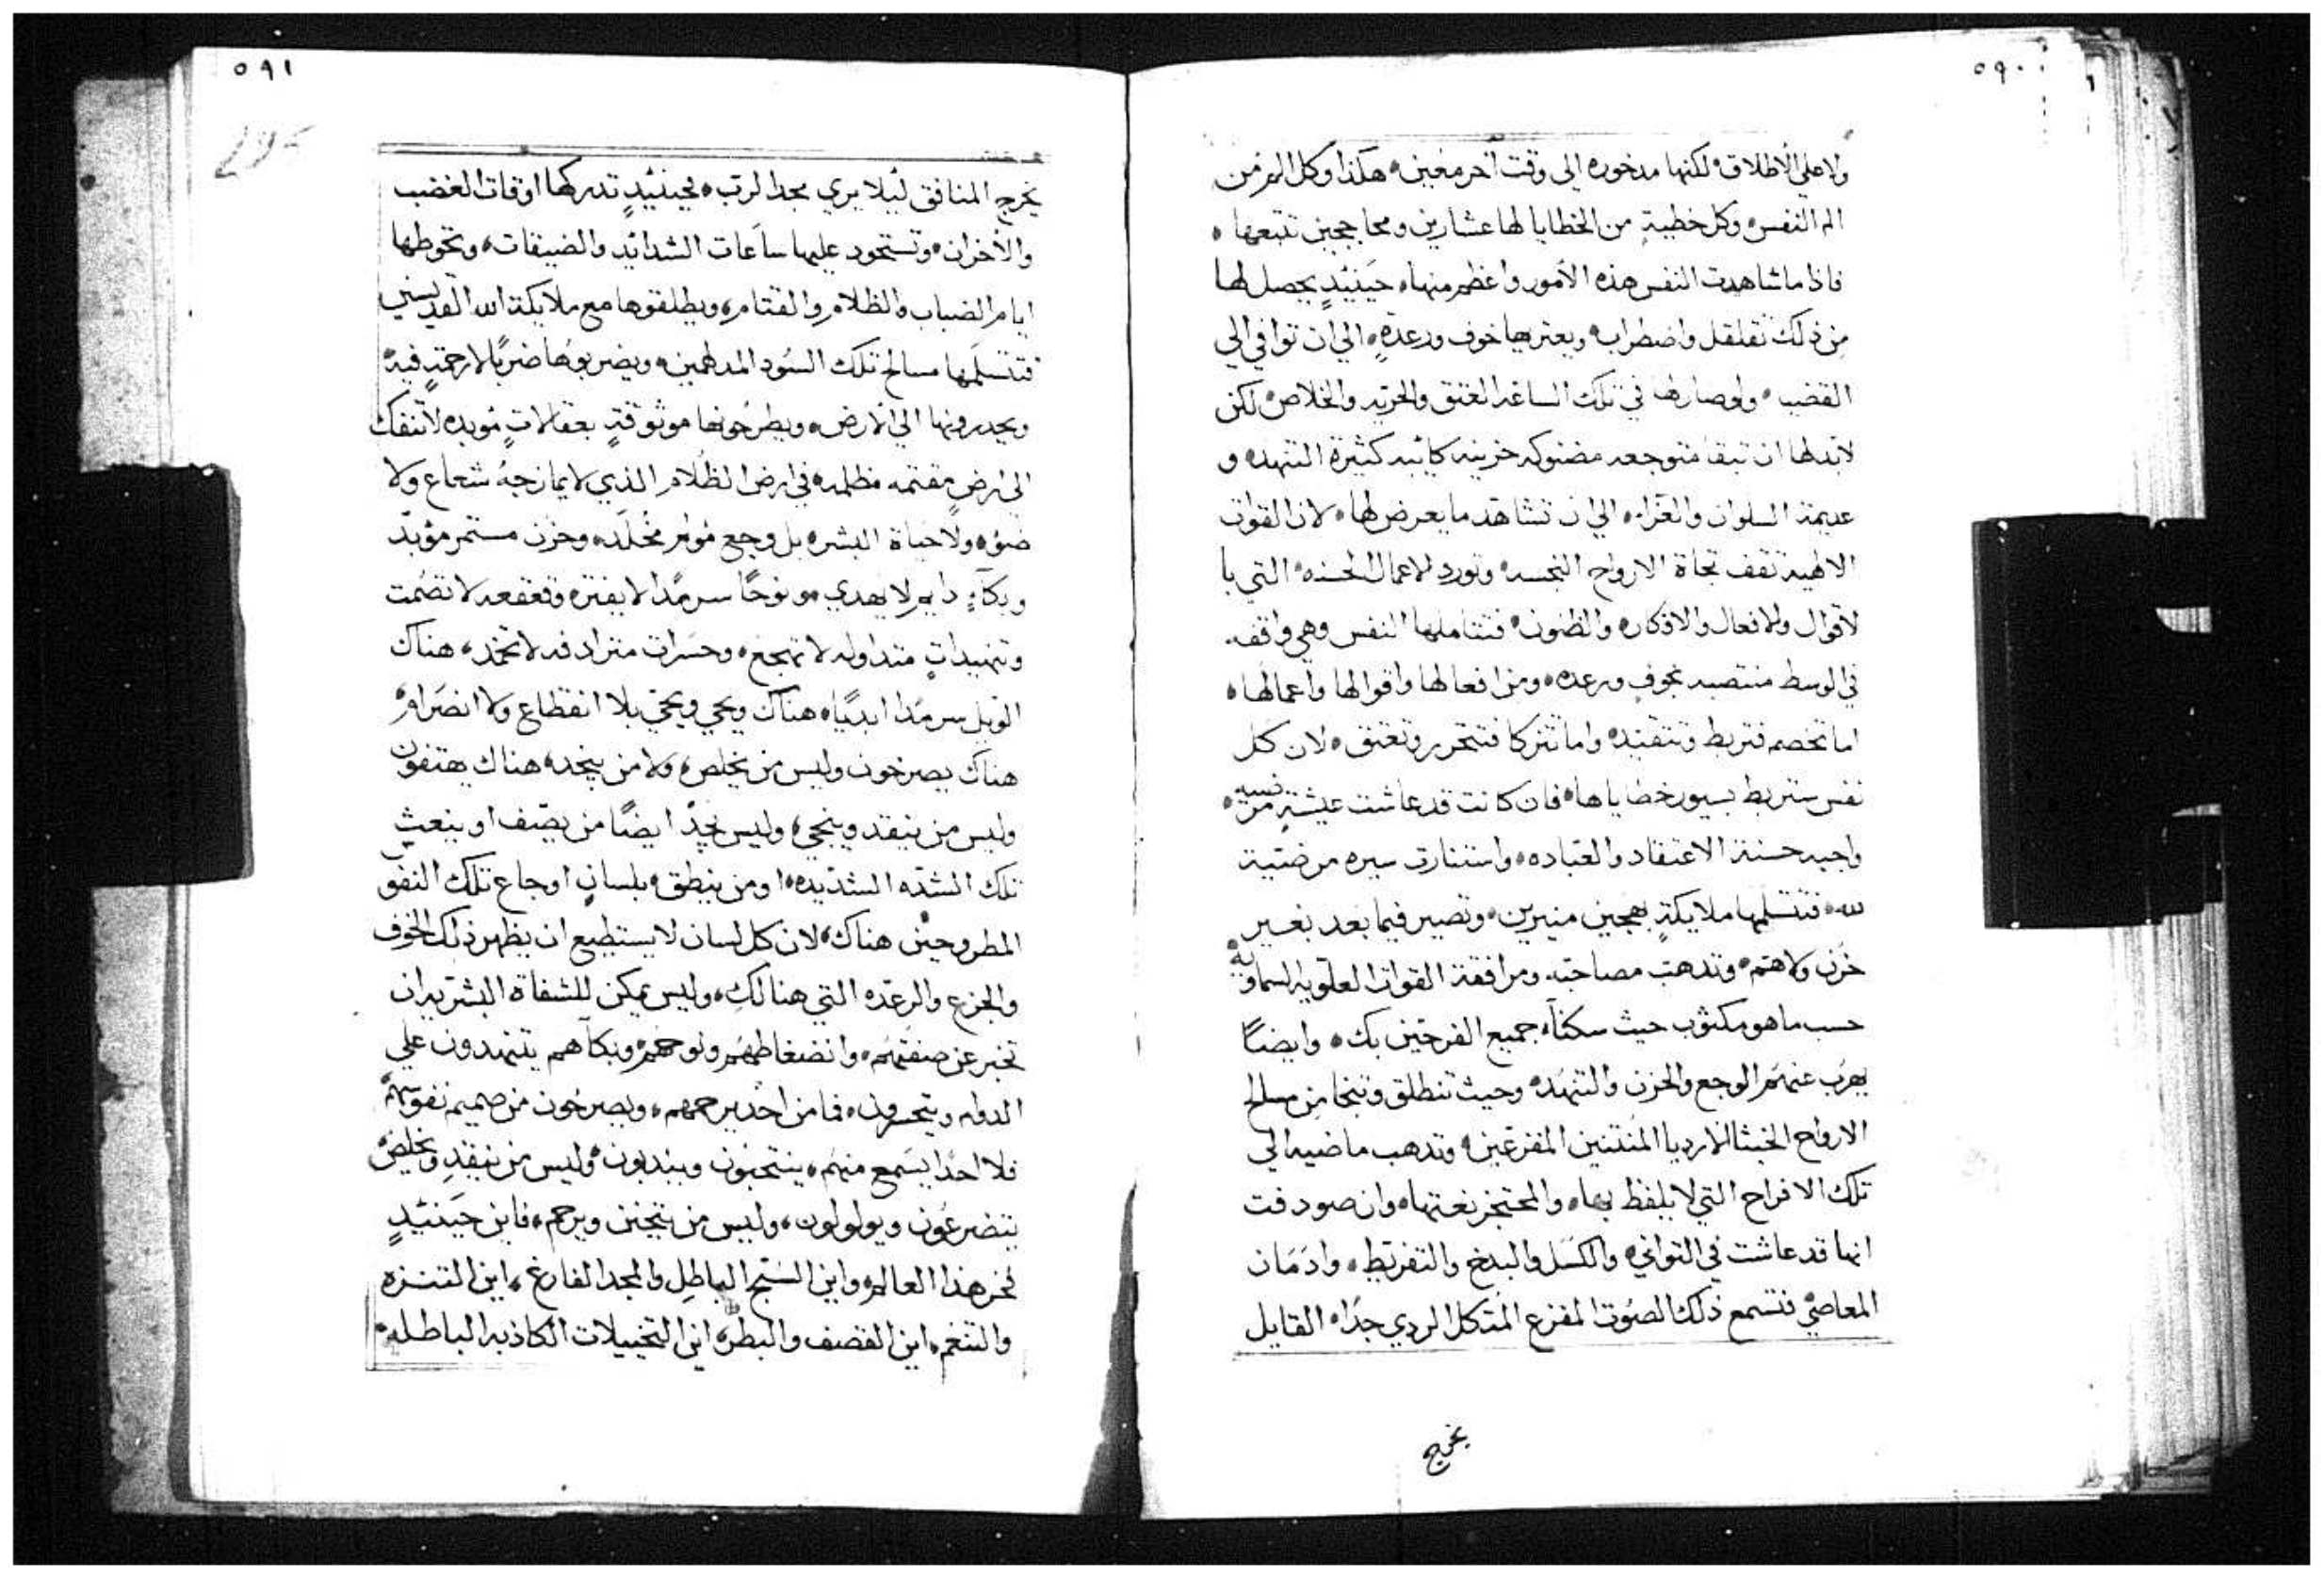 ٥٩٠
ولا على الاطلاق، لكنها مدخوره الى وقت آخر معين، هكذا وكل الم من
الم النفس، وكل خطيةٍ من الخطايا لها عشارين ومحاججين تتبعها،
فاذا ما شاهدت النفس هذه الأمور واعظم منها، حينيئدٍ يحصل لها
من ذلك تقلقل واضطراب، ويعتريها خوف ورعدةٍ، الي ان توافي الي
القضيه، ولو صار لها في تلك الساعه العتق والحريه والخلاص، لكن
لابد لها ان تبقا متوجعه مضنوكه حزينه كايبه كثيرة التنهده و
عديمة السلوان والعزاء، الي ان تشاهد ما يعرض لها، لان القوات
الالهية تقف تجاة الارواح النجسه، وتورد الاعمال الحسنه، التي با
لاقوال والافعال والافكاره والظنون، فتتاملها النفس وهي واقفه
في الوسط منتصبه بخوفٍ ورعده، ومن افعالها واقوالها واعمالها،
اما تخصم فتربط وتتقيد، واما تتزكا فتتحرر وتعتق، لان كل
نفس ستربط بسيور خطاياها، فان كانت قد عاشت عيشةٍ
واجبه حسنة الاعتقاد والعباده، واستنارت سيره مرضيّة
لله، فتتسلمها ملايكةٍ بهجين منيرين، وتصير فيما بعد بغير
حزن ولا هم، وتدهب مصاحبه ومرافقة القوات العلويه السماويّه
حسب ما هو مكتوب حيث سكنآ، جميع الفرحين بك، وايضاً
يهرب عنهم الوجع والحزن والتنهد، وحيث تنطلق وتنجا من مسالح
الارواح الخبثا الارديا المنتنين المفزعين، وتدهب ماضيه الي
تلك الافراح التي لا يلفظ بها، والمحتجز نعتها، وان صودفت
انها قد عاشت في التواني، والكسل والبدخ والتفريط، وادمان
المعاصي، فتسمع ذلك الصوت المفزع المتكل الردي جدًا، القايل
يخرج
٥٩١
يخرج المنافق ليُلا يري مجد الرب، فحينيئدٍ تدركها اوقات الغضب
والأحزان، وتستحود عليها ساعات الشدايد والضيقات، وتحوطها
ايام الضباب والظلام والقتام، ويطلقوها مع ملايكة الله القديسين
فتتسلمها مسالح تلك السود المدلهمين، ويضربوها ضربًا لا رحمةٍ فيه
ويحدرونها الي الارض، ويطرحونها موثوقةٍ بعقالاتٍ موبده لا تنفك
الي ارضٍ مقتمه مظلمه، في ارض الظلام الذي لا يمازجهُ شعاع ولا
ضوء، ولا حياة البشر، بل وجع مولم مخلّد، وحزن مستمر مؤبّد
وبكآءٍ دايم لا يهدي، ونوحًا سرمدًا لا يفتر، وقعقعه لا تصمت
وتنهيداتٍ متداوله لا تهجع، وحسرات مترادفه لا تخمد، هناك
الويل سرمدًا ابديًا، هناك ويحي ويحي بلا انقطاع ولا انصرام،
هناك يصرخون وليس من يخلص، ولا من ينجد، هناك يهتفون
وليس من ينقد وينجي، وليس يجدّ ايضًا من يصف او ينعث
تلك الشدّه الشديده، او من ينطق، بلسانٍ اوجاع تلك النفو
المطروحين هناك، لان كل لسان لا يستطيع ان يظهر ذلك الخوف
والجزع والرعده التي هنالك، وليس يمكن للشفاة البشريه ان
تخبر عن ضيقتهم، وانضغاطهم ونوحهم، وبكآهم يتنهدون على
الدوام ويتحسرون، فما من احد يرحمهم، ويصرخون من صميم نفوسهم
فلا احدًا يسمع منهم، ينتحبون ويندبون، وليس من ينقد ويخلص،
يتضرعون ويولولون، وليس من يتحنن ويرحم، فاين حينيئدٍ
فخر هذا العالم، واين السبح الباطل والمجد الفارغ، اين التنزه
والتنعم، اين القصف والبطر، اين التخييلات الكاذبه الباطله،